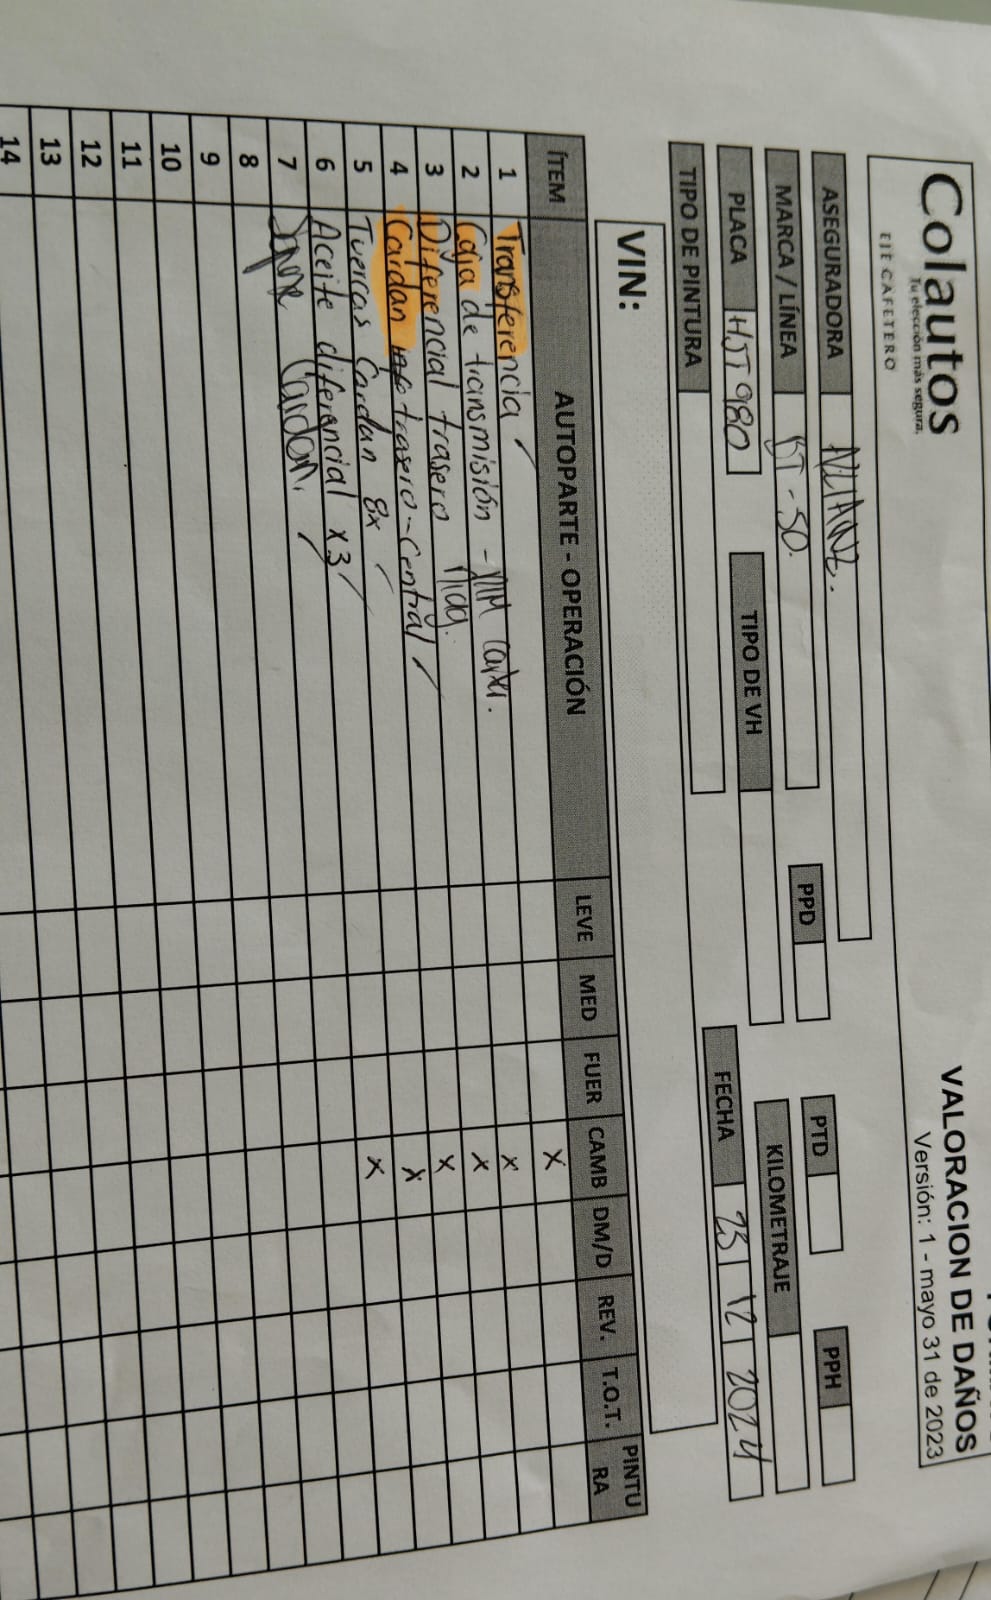 Colautos
Tu elección más segura.
EJE CAFETERO
VALORACION DE DAÑOS
Versión: 1 - mayo 31 de 2023
ASEGURADORA
MARCA / LÍNEA BT-50.
PPD
PTD
PPH
PLACA HJT980
TIPO DE VH
KILOMETRAJE
TIPO DE PINTURA
FECHA 23 12 2024
VIN:
ÍTEM AUTOPARTE - OPERACIÓN LEVE MED FUER CAMB DM/D REV. T.O.T. PINTU
RA
X
1 Transferencia X
2 Caja de transmisión - X
3 Diferencial trasero X
4 Cardan trasero-central X
5 Tuercas Cardan 8x X
6 Aceite diferencial x3
7 Cardan.
8
9
10
11
12
13
14